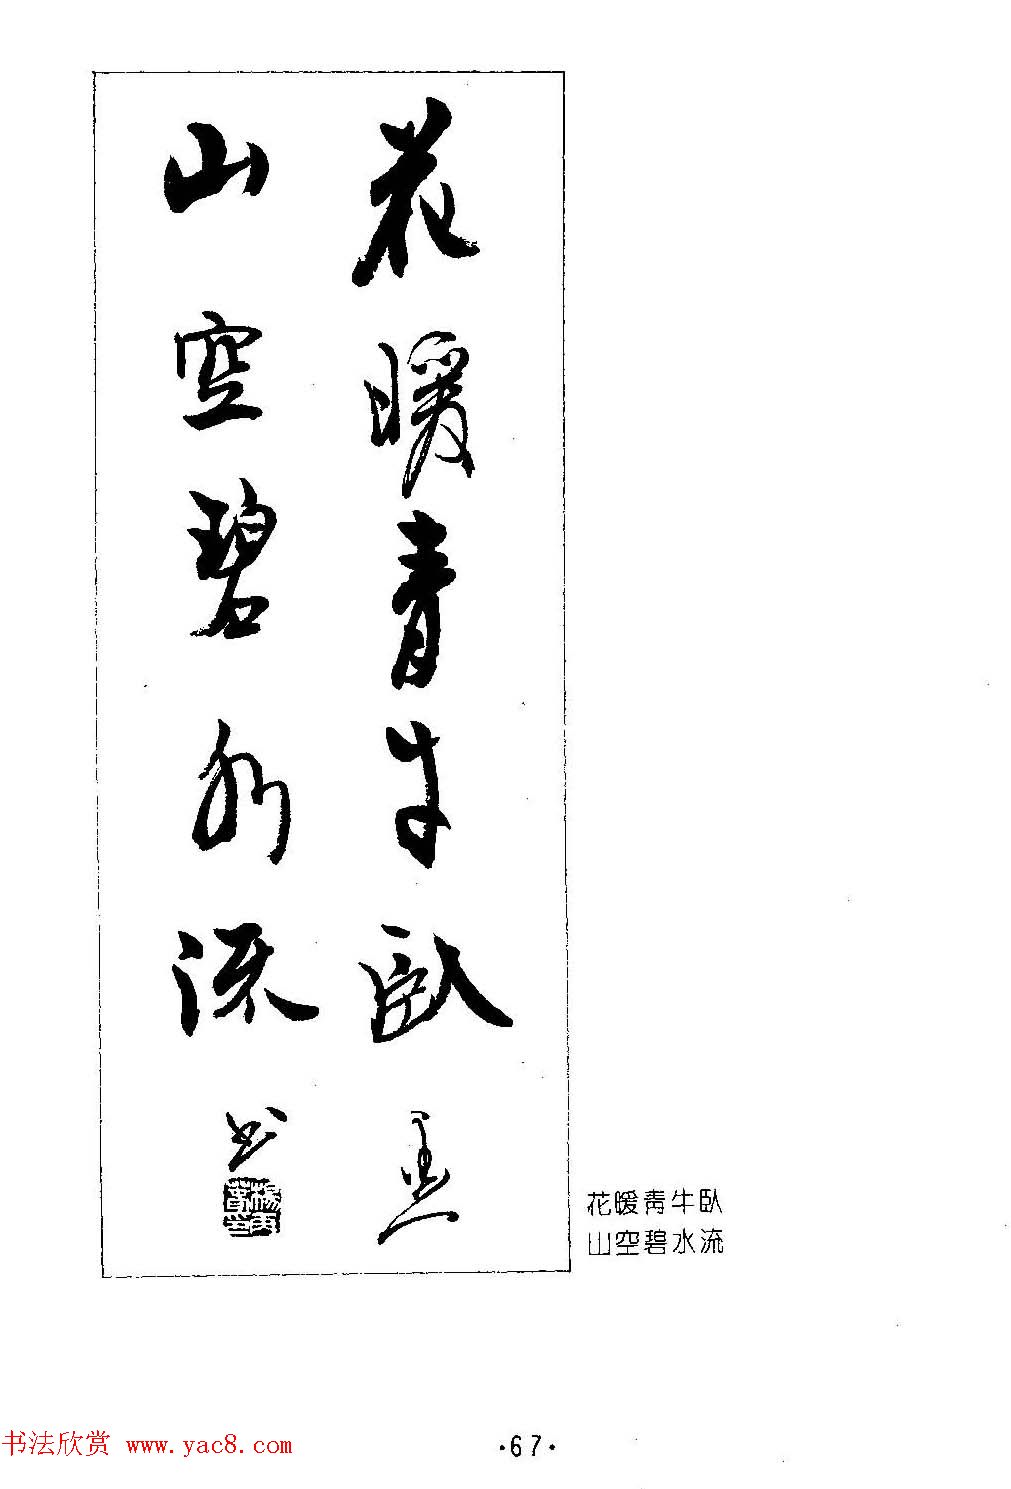 花暖青牛臥
山空碧水流
书
花暖青牛臥
山空碧水流
·67·
书法欣赏 www.yac8.com